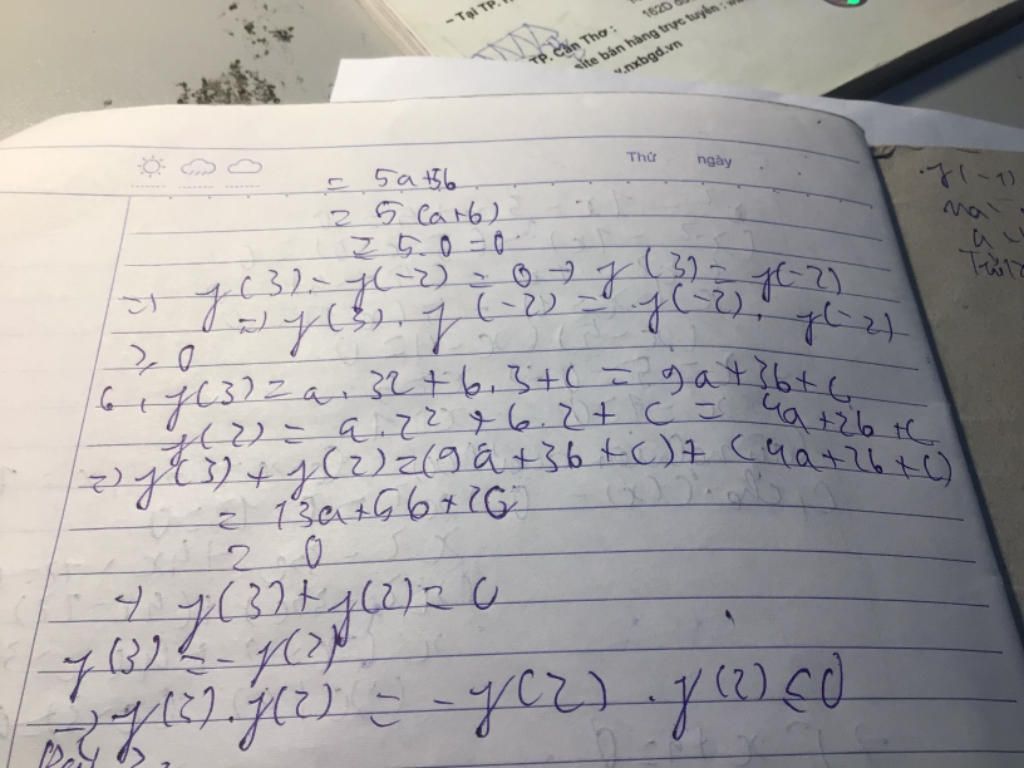 – Tại TP.
162D
TP. Cần Thơ :
site bán hàng trực tuyến :
.nxbgd.vn
Thứ ngày
= 5a+5b
= 5(a+b)
= 5.0=0
=) y(3) - y(-2) = 0 → y(3) = y(-2)
=) y(3). y(-2) = y(-2). y(-2)
≥ 0
6, y(3) = a.32 + b.3+c = 9a+3b+c
y(2) = a.22 + b.2 + c = 4a+2b+c
=) y(3) + y(2)=(9a+3b+c)+ (4a+2b+c)
= 13a+5b+2c
= 0
→ y(3)+y(2)= 0
y(3) = - y(2)
=) y(3).y(2) = -y(2) . y(2) ≤0
y(-1)
a